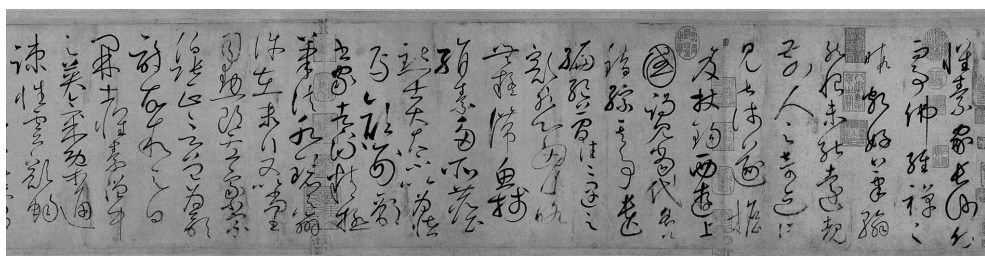 懷素家長沙幼而
事佛經禪之
暇頗好筆翰
然恨未能遠覩
前人之奇迹所
見甚淺遂擔
笈杖錫西遊上
國謁見當代名公
錯綜其事遺
編絕簡往往遇之
豁然心胸略
無疑滯魚牋
絹素多所塵
點士大夫不以為怪
焉顏刑部
書家者流精極
筆法水鏡之辨
許在末行又以尚
書司勳郎盧象小宗
伯張正言曾為歌
詩故敘之曰
開士懷素僧中
之英氣概通
疎性靈豁暢